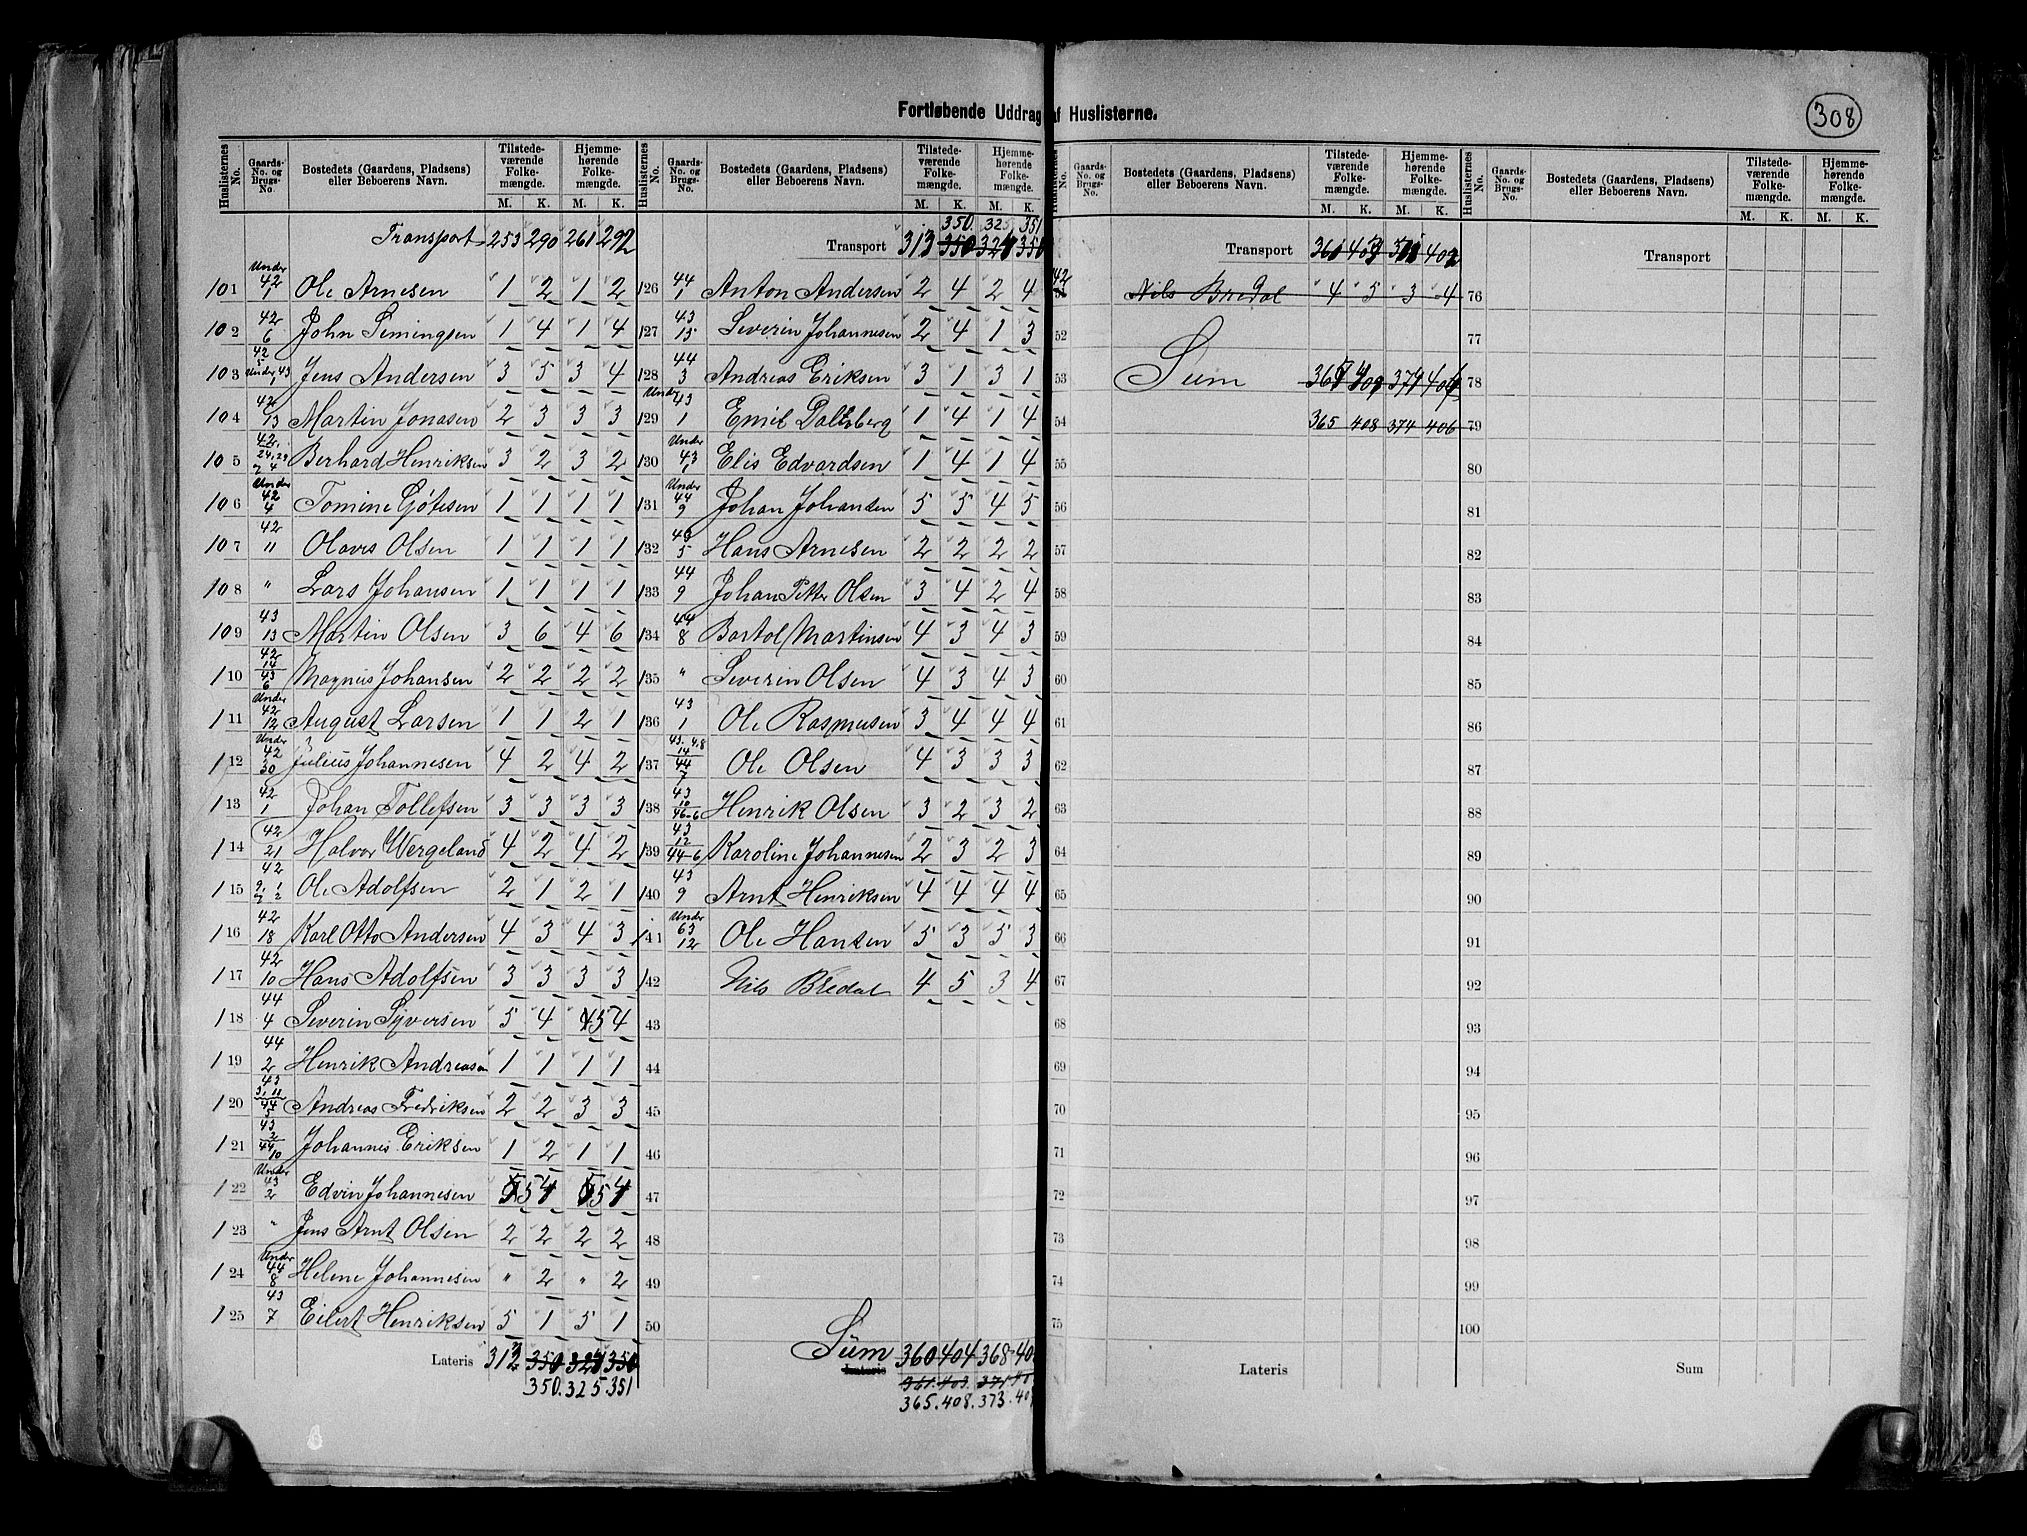 Fortløbende Uddrag af Huslisterne.
308
Huslisternes No. | Gaards-No. og Brugs-No. | Bostedets (Gaardens, Pladsens) eller Beboerens Navn. | Tilstedeværende Folkemængde. M. K. | Hjemmehørende Folkemængde. M. K.
Transport 253 290 261 292
101 Under 42 1 Ole Arnesen 1 2 1 2
102 42 6 John Simingsen 1 4 1 4
103 42 5 Under 43 1 Jens Andersen 3 5 3 4
104 42 13 Martin Jonasen 2 3 3 3
105 42, 24, 29 Berhard Henriksen 3 2 3 2
106 Under 42 4 Tomine Götesen 1 1 1 1
107 42 11 Olaves Olsen 1 1 1 1
108 " Lars Johansen 1 1 1 1
109 43 13 Martin Olsen 3 6 4 6
110 42 14 43 6 Magnus Johansen 2 2 2 2
111 Under 42 12 August Larsen 1 1 2 1
112 Under 42 30 Julius Johannesen 4 2 4 2
113 42 1 Johan Tollefsen 3 3 3 3
114 42 21 Halvor Wergeland 4 2 4 2
115 42 Ole Adolfsen 2 1 2 1
116 42 18 Karl Otto Andersen 4 3 4 3
117 42 10 Hans Adolfsen 3 3 3 3
118 44 4 Severin Syversen 5 4 5 4
119 44 2 Henrik Andreasen 1 1 1 1
120 43 3, 11 44 5 Andreas Fredriksen 2 2 3 3
121 43 2 44 10 Johannes Eriksen 1 2 1 1
122 Under 43 2 Edvin Johannesen 5 4 5 4
123 " Jens Arnt Olsen 2 2 2 2
124 Under 44 8 Helene Johannesen " 2 " 2
125 43 7 Eilert Henriksen 5 1 5 1
Lateris 313 350 350
350. 325 351
Huslisternes No. | Gaards-No. og Brugs-No. | Bostedets (Gaardens, Pladsens) eller Beboerens Navn. | Tilstedeværende Folkemængde. M. K. | Hjemmehørende Folkemængde. M. K.
350. 325 351
Transport 313 350 350
126 44 1 Anton Andersen 2 4 2 4
127 43 15 Severin Johannesen 2 4 1 3
128 44 3 Andreas Eriksen 3 1 3 1
129 Under 43 1 Emil Daltsberg 1 4 1 4
130 Under 43 1 Elis Edvardsen 1 4 1 4
131 Under 44 9 Johan Johansen 5 5 4 5
132 5 Hans Arnesen 2 2 2 2
133 44 9 Johan Petter Olsen 3 4 2 4
134 44 8 Bartol Martinsen 4 3 4 3
135 " Severin Olsen 4 3 4 3
136 43 1 Ole Rasmusen 3 4 4 4
137 43. 4,8 14 44 7 Ole Olsen 4 3 3 3
138 43 10 46-6 Henrik Olsen 3 2 3 2
139 43 12 44-6 Karoline Johannesen 2 3 2 3
140 43 9 Arnt Henriksen 4 4 4 4
141 Under 63 12 Ole Hansen 5 3 5 3
142 Nils Bredal 4 5 3 4
43
44
45
46
47
48
49
50
Sum 360 404 368
Lateris 361. 403. 371
365. 408. 373.
Huslisternes No. | Gaards-No. og Brugs-No. | Bostedets (Gaardens, Pladsens) eller Beboerens Navn. | Tilstedeværende Folkemængde. M. K. | Hjemmehørende Folkemængde. M. K.
Transport
42 51 Nils Bredal 4 5 3 4
52
53 Sum
54 365 408 374 406
55
56
57
58
59
60
61
62
63
64
65
66
67
68
69
70
71
72
73
74
75
Lateris
Huslisternes No. | Gaards-No. og Brugs-No. | Bostedets (Gaardens, Pladsens) eller Beboerens Navn. | Tilstedeværende Folkemængde. M. K. | Hjemmehørende Folkemængde. M. K.
Transport
76
77
78
79
80
81
82
83
84
85
86
87
88
89
90
91
92
93
94
95
96
97
98
99
100
Sum